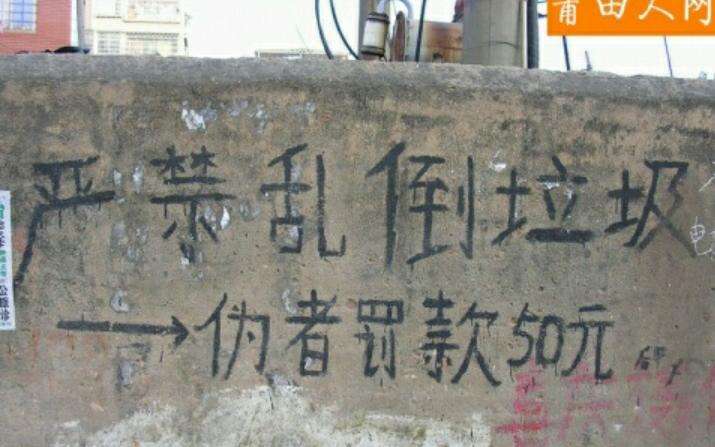 莆田人网
严禁乱倒垃圾
→伪者罚款50元